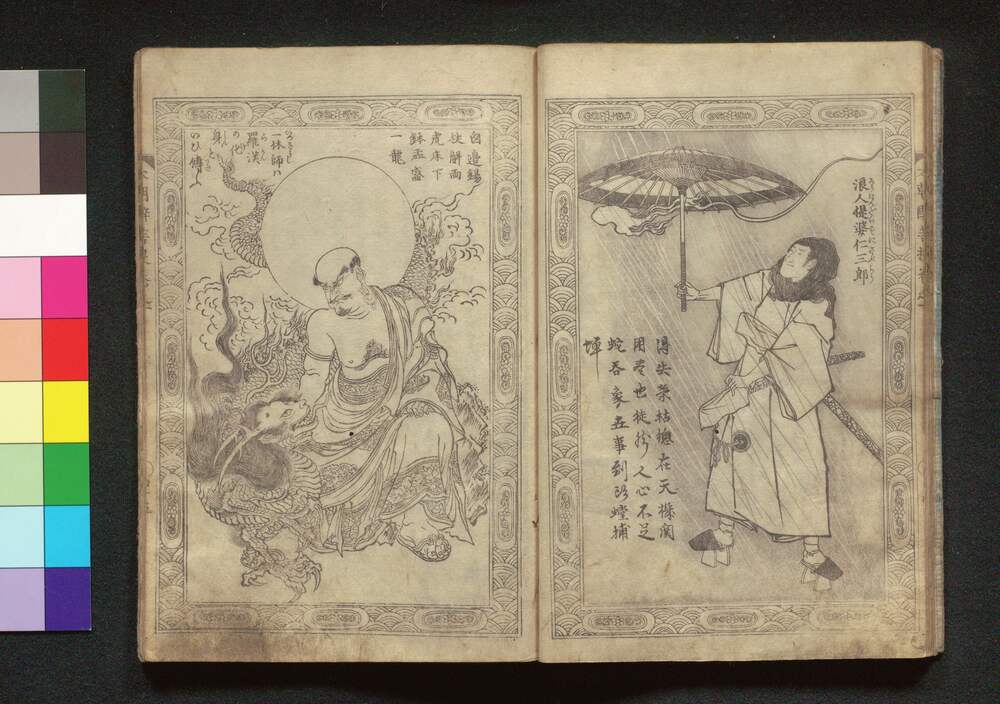 浪人提婆仁三郎
得失榮枯揔在天機関
用尽也徒然人心不足
蛇吞象世事到頭螳捕
蟬
囱邉錫
杖解両
虎床下
鉢盂藏
一龍
一休師ハ
羅漢
の化
身と
いひ傳ふ